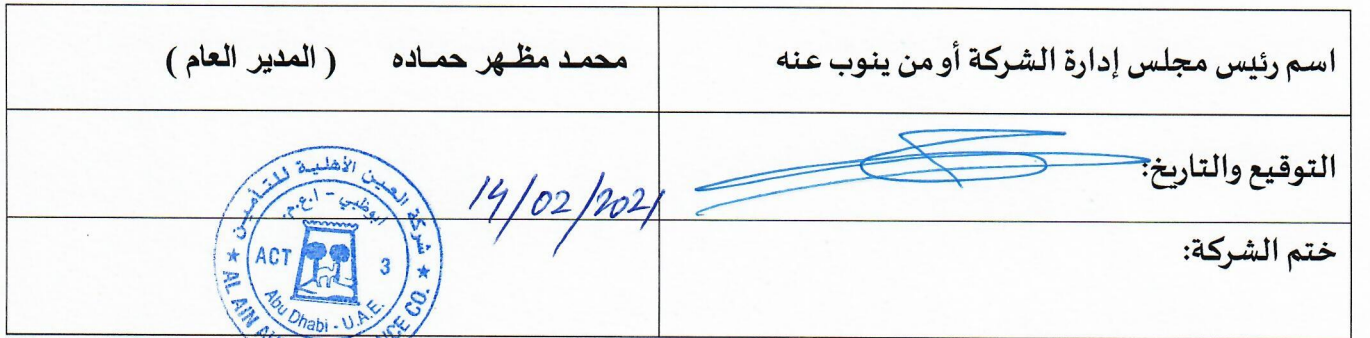 اسم رئيس مجلس إدارة الشركة أو من ينوب عنه
محمد مظهر حماده ( المدير العام )
التوقيع والتاريخ:
14/02/2021
ختم الشركة:
شركة العين الأهلية للتأمين
ابوظبي - ا.ع.م.
ACT 3
Abu Dhabi - U.A.E.
★ AL AIN CO. ★